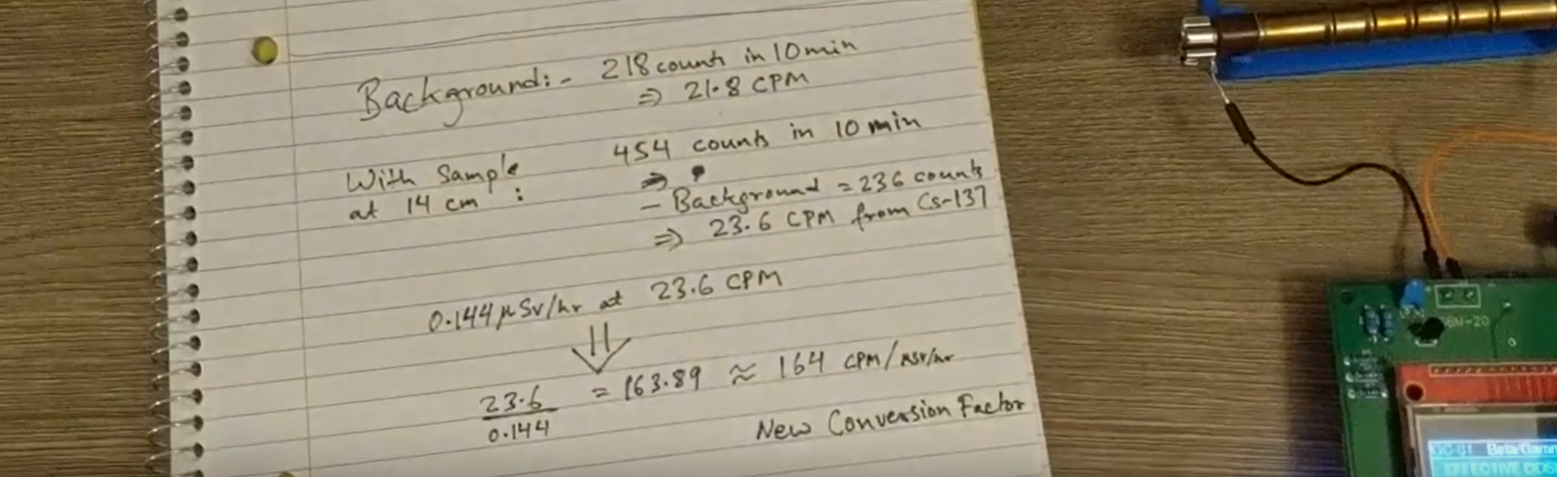 Background:- 218 counts in 10 min
⇒ 21.8 CPM
With Sample at 14 cm : 454 counts in 10 min
⇒
- Background = 236 counts
⇒ 23.6 CPM from Cs-137
0.144 μSv/hr at 23.6 CPM
⇓
23.6
0.144
= 163.89 ≈ 164 CPM/μSv/hr
New Conversion Factor
SBM-20
GC-01 Beta/Gamm
EFFECTIVE DOS